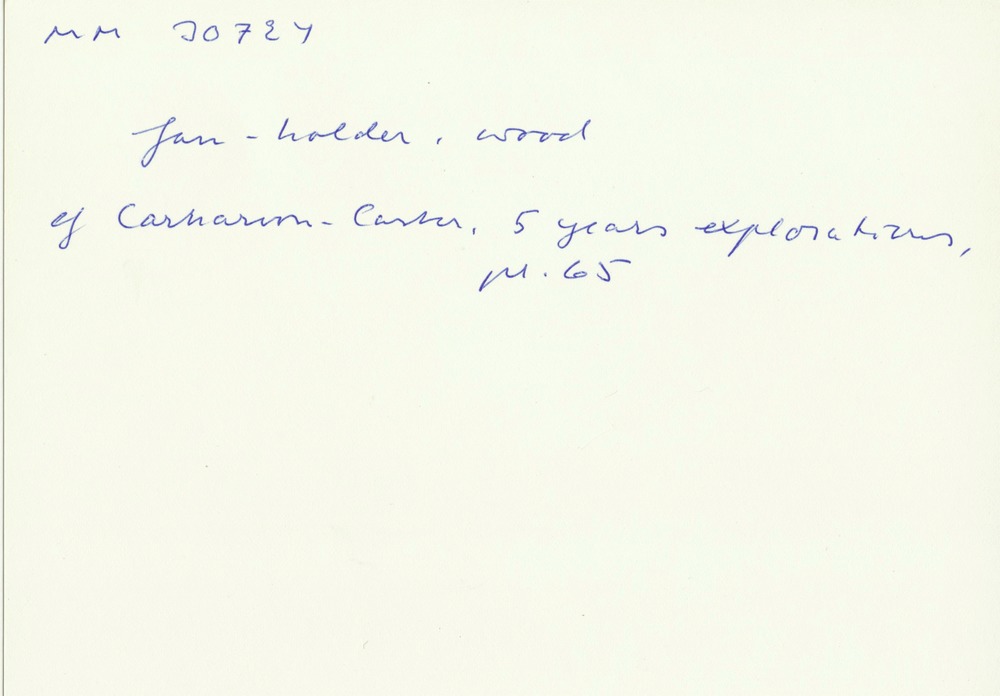 MM 30724
fan-holder, wood
cf Carnarvon-Carter, 5 years explorations,
pl. 65